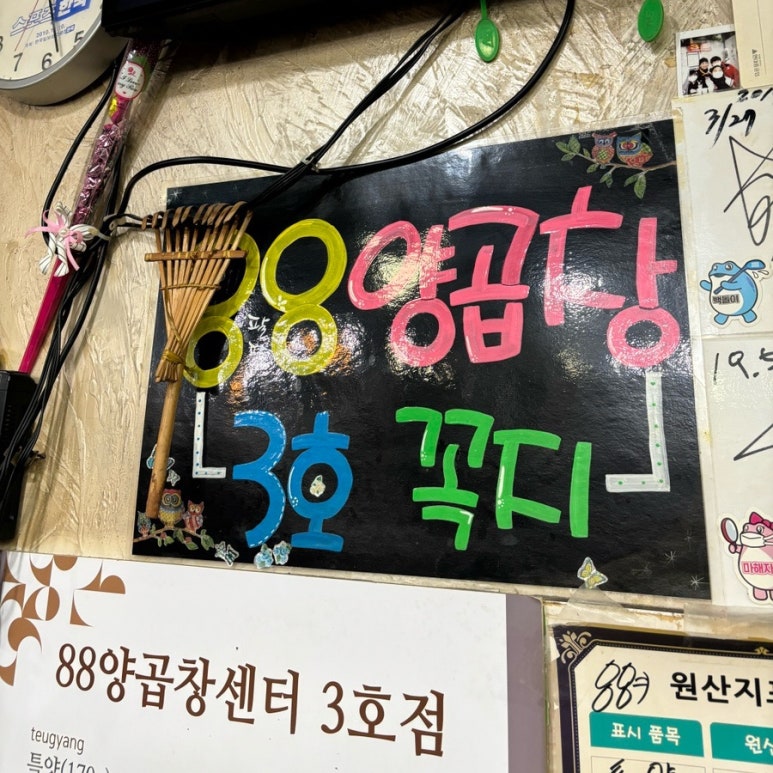 88양곱창
3호 꼭지
88양곱창센터 3호점
teugyang
특양(170
원산지표
표시 품목
원산
3/27
19.5
백돌이
마해자